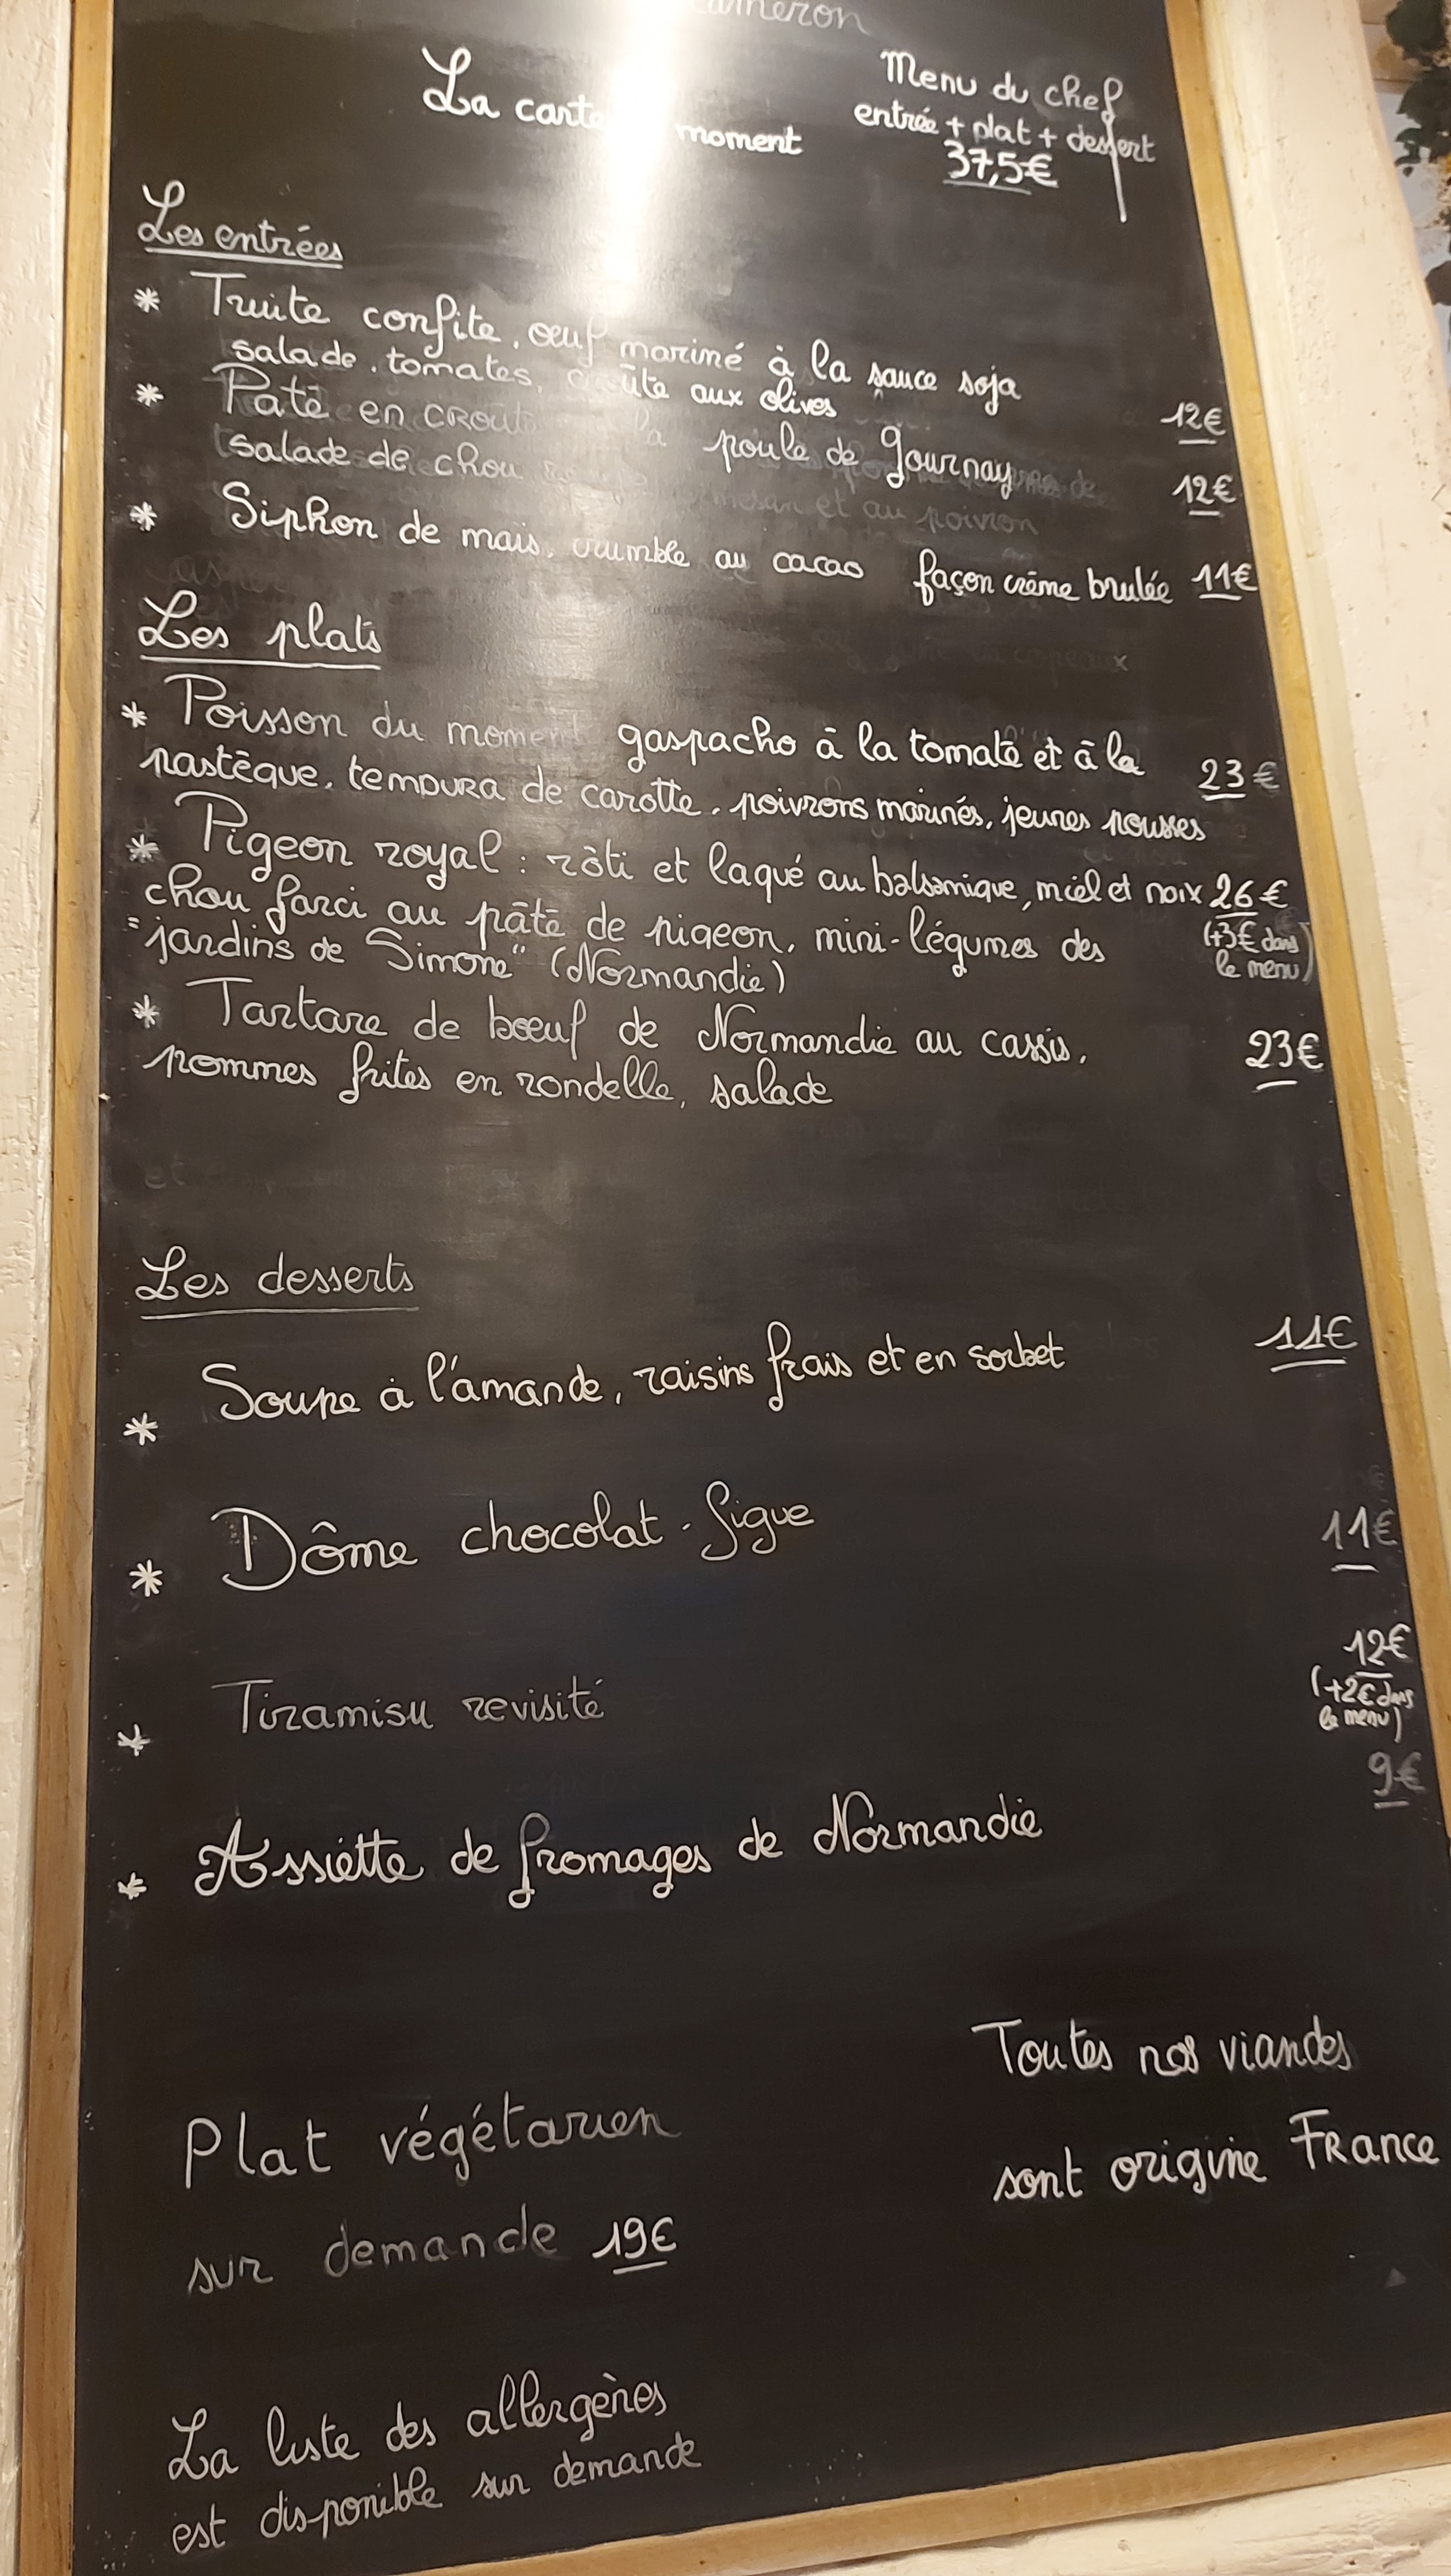 La carte moment
Menu du chef
entrée + plat + dessert
37,5€
Les entrées
* Truite confite, œuf mariné à la sauce soja
salade, tomates, aux olives 12€
* Paté en crout la poule de Gournay
salade de chou 12€
* Siphon de maïs, crumble au cacao façon crème brulée 11€
Les plats
* Poisson du moment gaspacho à la tomate et à la
pastèque, tempura de carotte, poivrons marinés, jeunes pousses 23€
* Pigeon royal : rôti et laqué au balsamique, miel et noix 26€
chou farci au pâté de pigeon, mini-légumes des (+3€ dans
"jardins de Simone" (Normandie) le menu)
* Tartare de bœuf de Normandie au cassis, 23€
pommes frites en rondelle, salade
Les desserts
* Soupe à l'amande, raisins frais et en sorbet 11€
* Dôme chocolat - figue 11€
* Tiramisu revisité 12€
(+2€ dans
le menu)
* Assiette de fromages de Normandie 9€
Toutes nos viandes
sont origine France
Plat végétarien
sur demande 19€
La liste des allergènes
est disponible sur demande